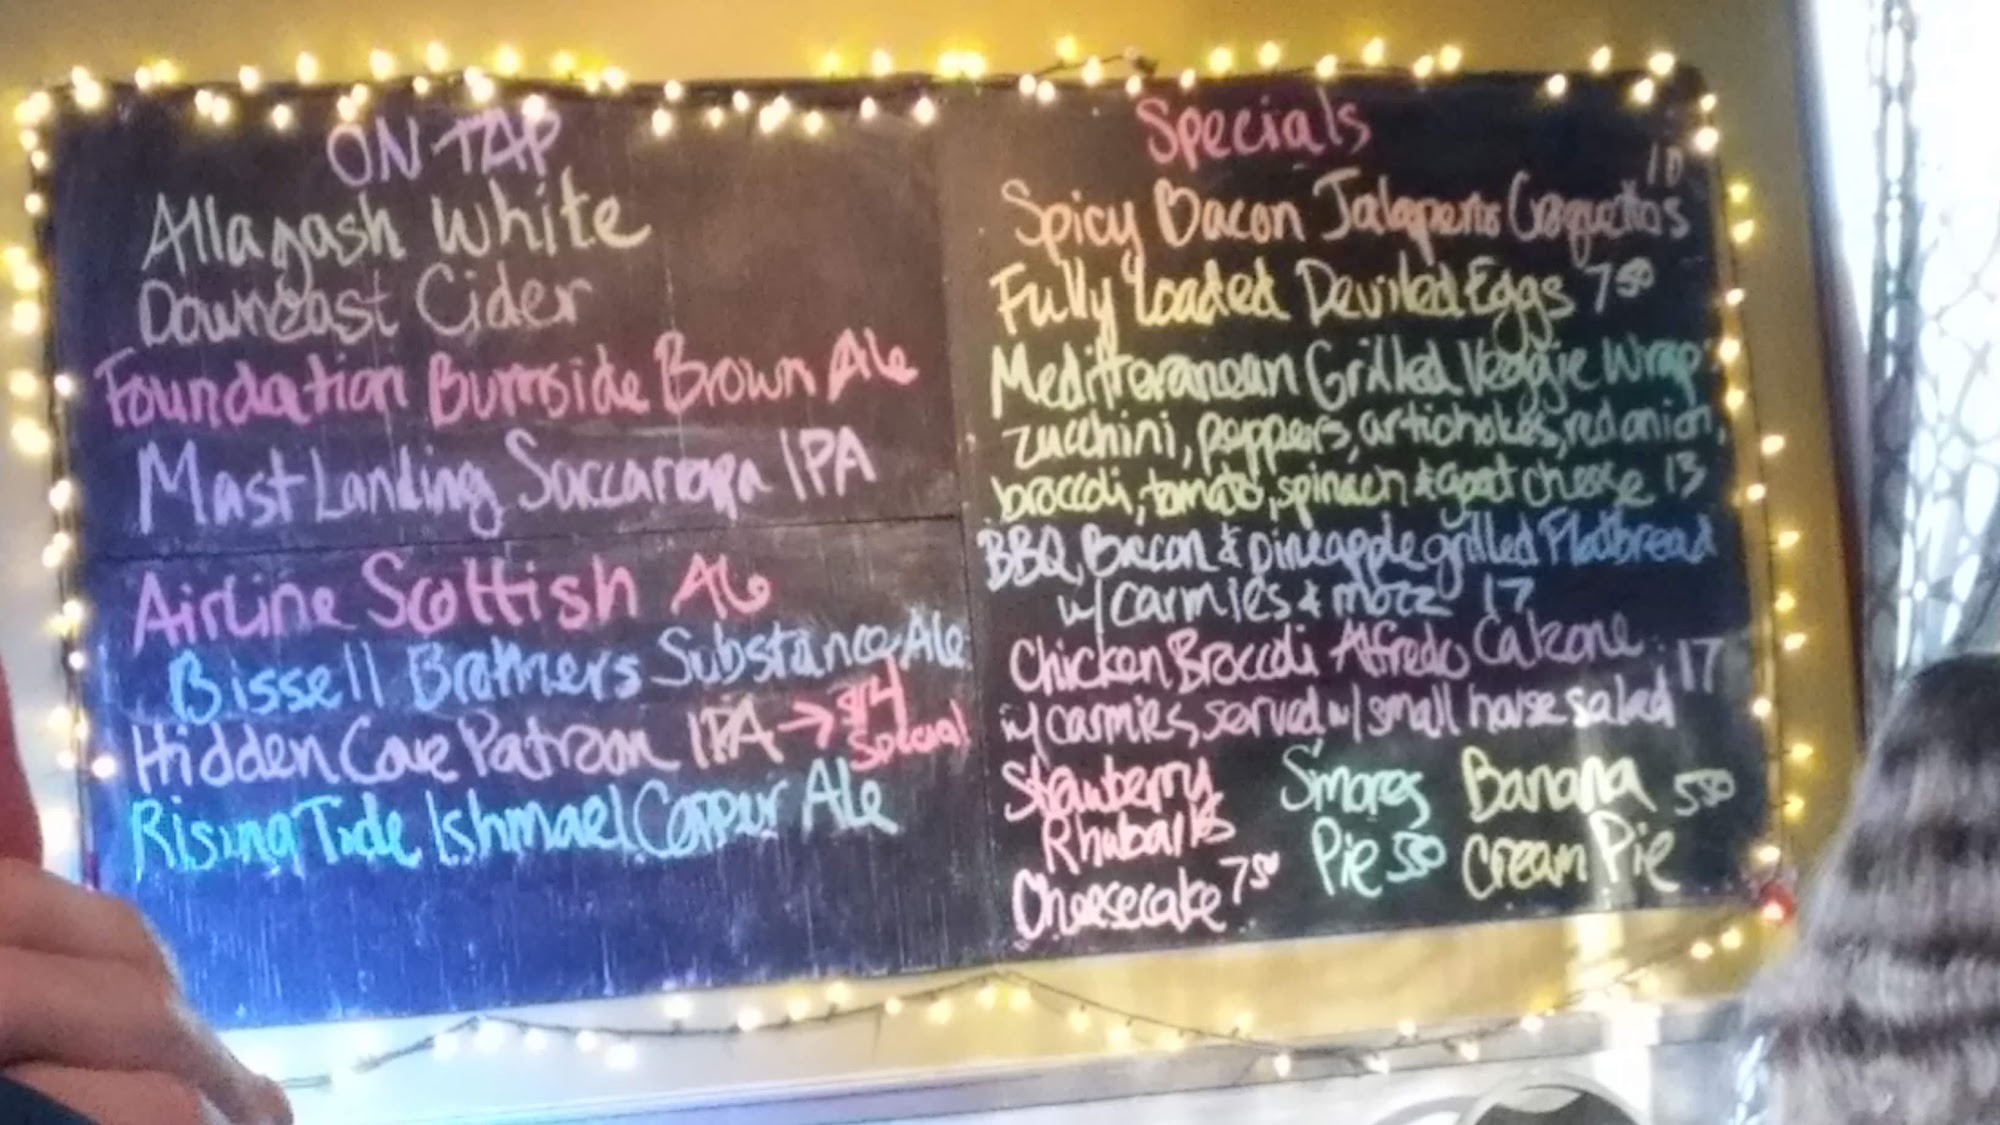 ON TAP
Allagash White
Downeast Cider
Foundation Burnside Brown Ale
Mast Landing Saccarappa IPA
Airline Scottish Ale
Bissell Brothers Substance Ale
Hidden Cove Patroon IPA → $4
Special
Rising Tide Ishmael Copper Ale
Specials
Spicy Bacon Jalapeno Croquettes 10
Fully Loaded Deviled Eggs 7 50
Mediterranean Grilled Veggie Wrap
zucchini, peppers, artichokes, red onion,
broccoli, tomato, spinach & goat cheese 13
BBQ, Bacon & pineapple grilled Flatbread
w/ carmies & mozz 17
Chicken Broccoli Alfredo Calzone 17
w/ carmies, served w/ small house salad
Strawberry
Rhubarb
Cheesecake 7 50
S'mores
Pie 5 50
Banana 5 50
Cream Pie